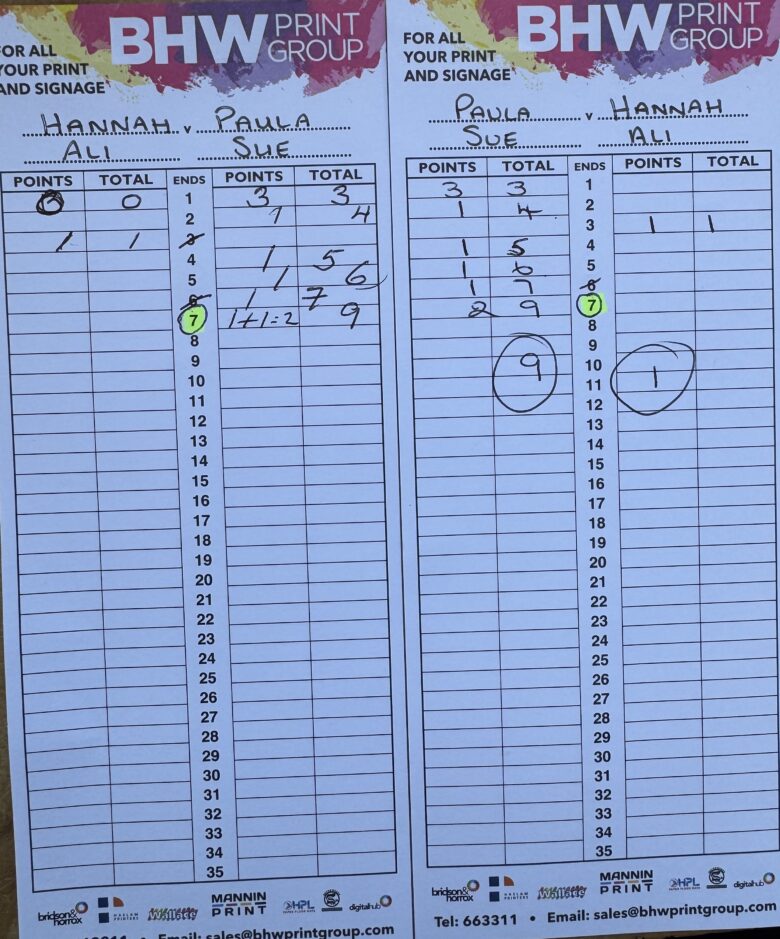 FOR ALL
YOUR PRINT
AND SIGNAGE
BHW PRINT GROUP
HANNAH v PAULA
ALI SUE
POINTS TOTAL ENDS POINTS TOTAL
0 1 3 3
2 1 4
1 1 3
4 1 5
5 1 6
6 1 7
7 1+1=2 9
8
9
10
11
12
13
14
15
16
17
18
19
20
21
22
23
24
25
26
27
28
29
30
31
32
33
34
35
bridson& horrox
HASLAM PRINTERS
MANNIN PRINT
HPL
digitalhub
Email: sales@bhwprintgroup.com
FOR ALL
YOUR PRINT
AND SIGNAGE
BHW PRINT GROUP
PAULA v HANNAH
SUE ALI
POINTS TOTAL ENDS POINTS TOTAL
3 3 1
1 4 2
3 1 1
1 5 4
1 6 5
1 7 6
2 9 7
8
9
9 10
11 1
12
13
14
15
16
17
18
19
20
21
22
23
24
25
26
27
28
29
30
31
32
33
34
35
bridson& horrox
HASLAM PRINTERS
MANNIN PRINT
HPL
digitalhub
Tel: 663311 • Email: sales@bhwprintgroup.com